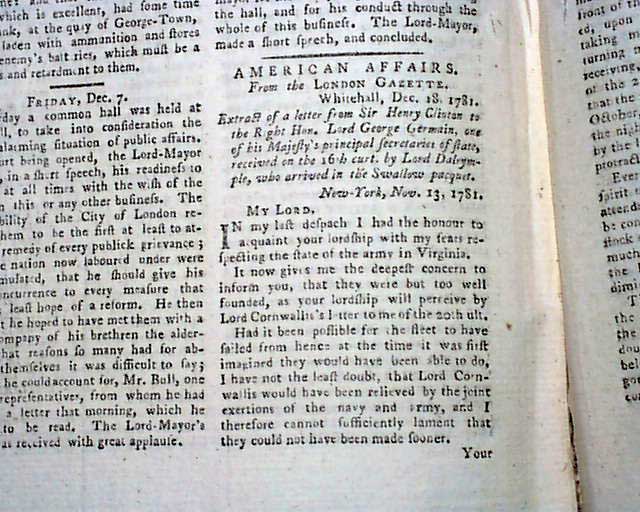 which is excellent, had some time
nk, at the quay of George-Town,
laden with ammunition and stores
enemy's batt ries, which must be a
s and retardment to them.
FRIDAY, Dec. 7.
day a common hall was held at
ll, to take into consideration the
alarming situation of public affairs.
urt being opened, the Lord-Mayor
, in a short speech, his readiness to
at all times with the wish of the
n this or any other business. The
bility of the City of London re-
hem to be the first at least to at-
remedy of every publick grievance;
e nation now laboured under were
mulated, that he should give his
oncurrence to every measure that
least hope of a reform. He then
t he hoped to have met them with a
ompany of his brethren the alder-
hat reasons so many had for ab-
themselves it was difficult to say;
he could account for, Mr. Bull, one
representatives, from whom he had
a letter that morning, which he
to be read. The Lord-Mayor's
as received with great applause.
the hall, and for his conduct through the
whole of this business. The Lord-Mayor,
made a short speech, and concluded.
AMERICAN AFFAIRS.
From the LONDON GAZETTE.
Whitehall, Dec. 18. 1781.
Extract of a letter from Sir Henry Clinton to
the Right Hon. Lord George Germain, one
of his Majesty's principal secretaries of state,
received on the 16th curt. by Lord Dalrym-
ple, who arrived in the Swallow pacquet.
New-York, Nov. 13, 1781.
MY LORD,
IN my last despach I had the honour to
acquaint your lordship with my fears re-
specting the state of the army in Virginia.
It now gives me the deepest concern to
inform you, that they were but too well
founded, as your lordship will perceive by
Lord Cornwallis's letter to me of the 20th ult.
Had it been possible for the fleet to have
sailed from hence at the time it was first
imagined they would have been able to do,
I have not the least doubt, that Lord Corn-
wallis would have been relieved by the joint
exertions of the navy and army, and I
therefore cannot sufficiently lament that
they could not have been made sooner.
Your
front of
ed, upon
taking
turning
receiving,
of the
that the
October,
the nig
by the l
protract
Ever
spirit
attenda
he con
stock
much
the
dimi
T
the
dou
bel